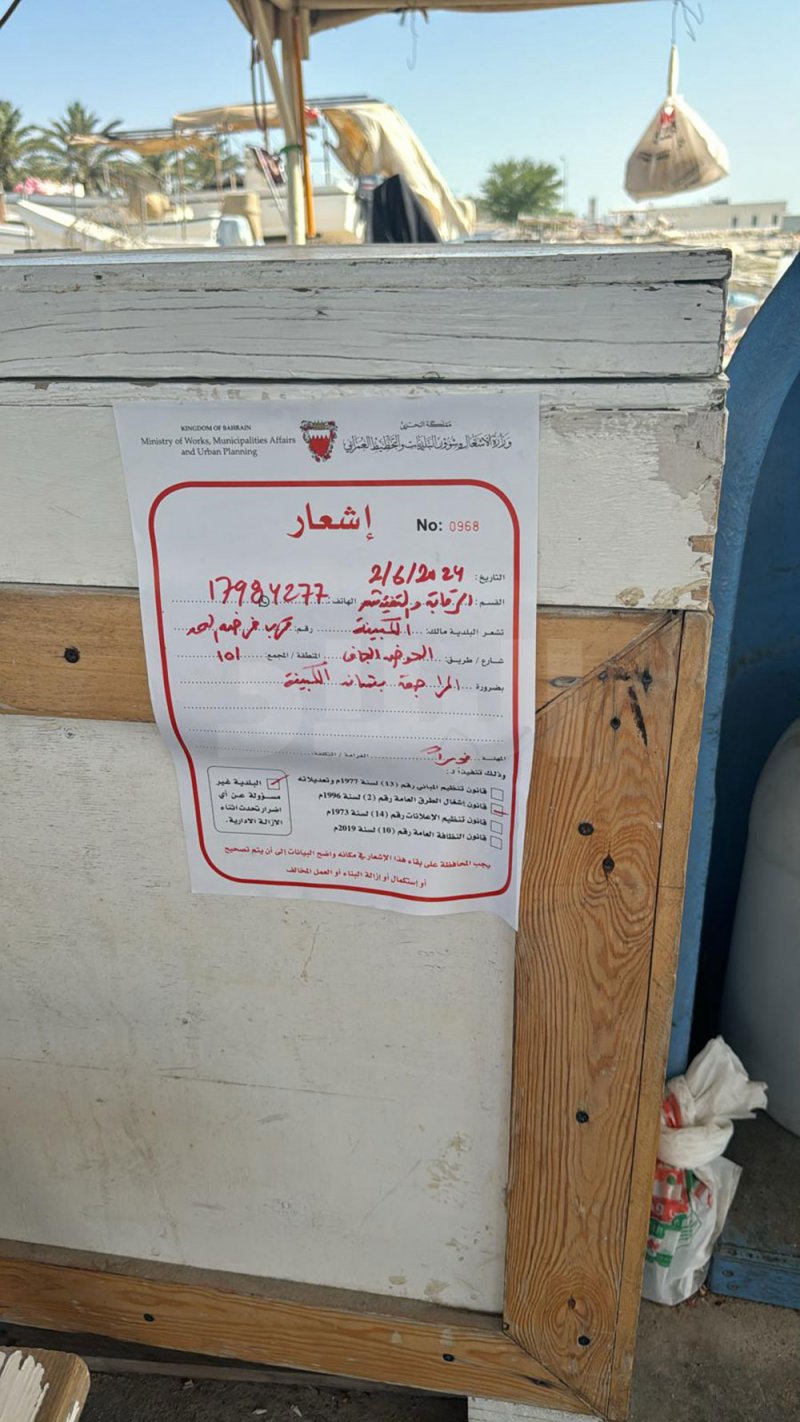 KINGDOM OF BAHRAIN
Ministry of Works, Municipalities Affairs
and Urban Planning
مملكة البحرين
وزارة الأشغال وشؤون البلديات والتخطيط العمراني
إشعار
No: 0968
التاريخ: 2/6/2024
القسم: الرقابة والتفتيش الهاتف: 17984277
تشعر البلدية مالك: الكبينة رقم: قرب فرضة الحد
شارع / طريق: الحوض الجاف المنطقة / المجمع: 101
بضرورة: المراجعة بشأن الكبينة
المهدة: فوراً الغرامة / التكلفة:
وذلك تنفيذاً لـ:
قانون تنظيم المباني رقم (13) لسنة 1977م وتعديلاته
قانون إشغال الطرق العامة رقم (2) لسنة 1996م
قانون تنظيم الإعلانات رقم (14) لسنة 1973م
قانون النظافة العامة رقم (10) لسنة 2019م
البلدية غير
مسؤولة عن أي
اضرار تحدث اثناء
الازالة الادارية.
يجب المحافظة على بقاء هذا الإشعار في مكانه واضح البيانات إلى أن يتم تصحيح
أو إستكمال أو إزالة البناء أو العمل المخالف